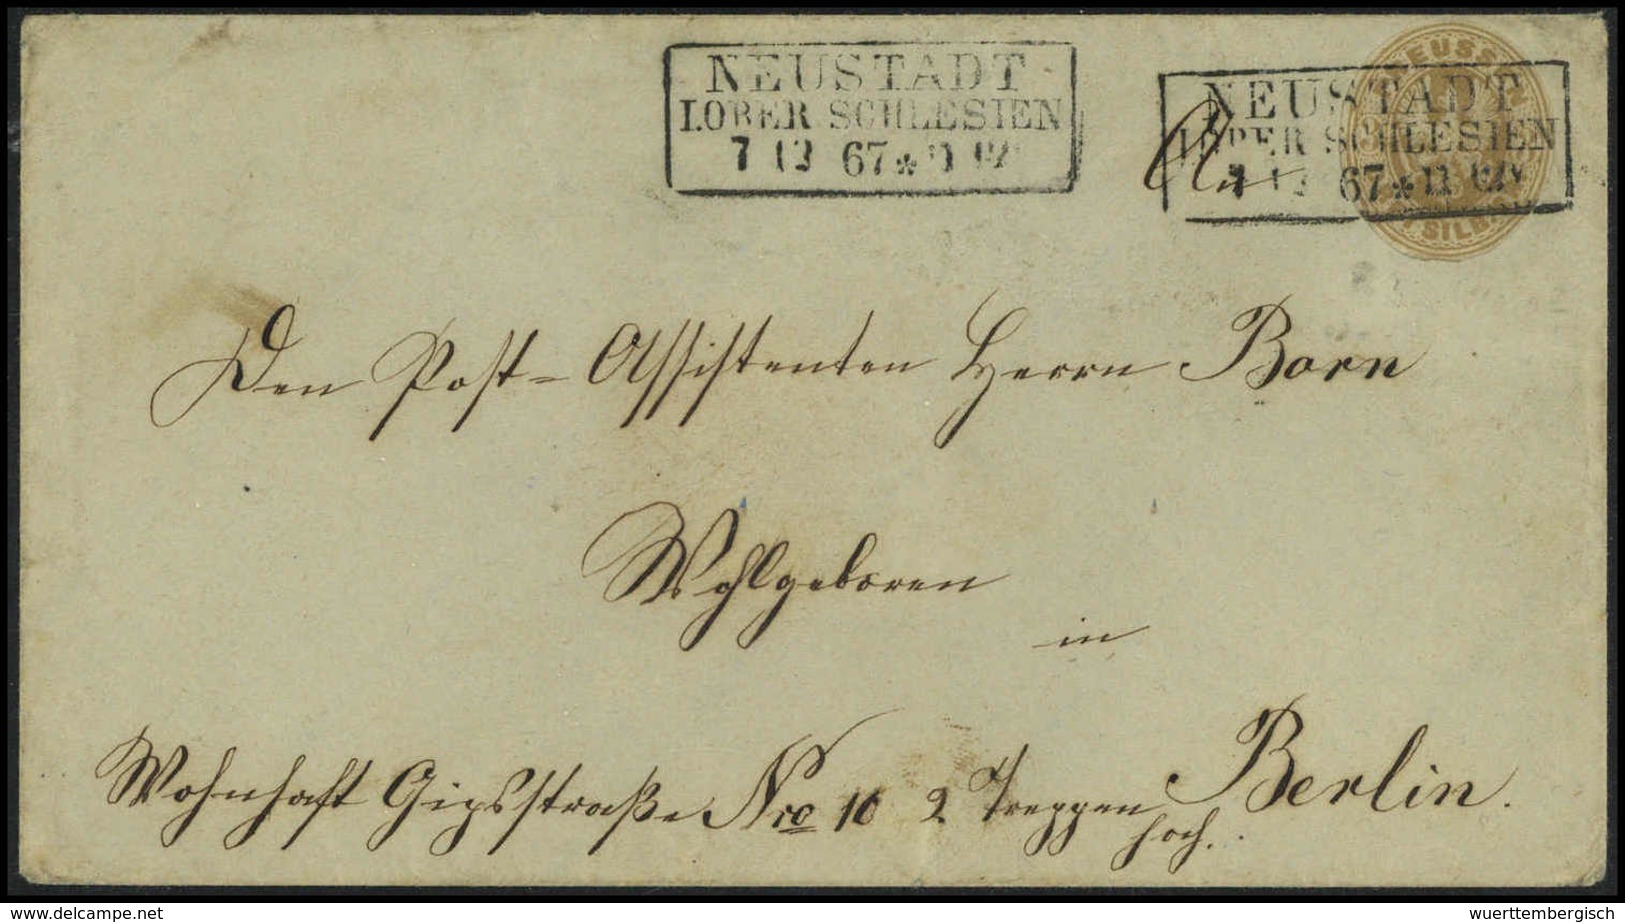 NEUSTADT
I.OBER SCHLESIEN
7 12 67 *
NEUSTADT
I.OBER SCHLESIEN
7 12 67 *
An
Den Post-Assistenten Herrn Born
Wohlgeboren
in
Berlin.
Wohnhaft Gipsstraße Nro 10 2 Treppen
hoch.
www.wuerttembergisch